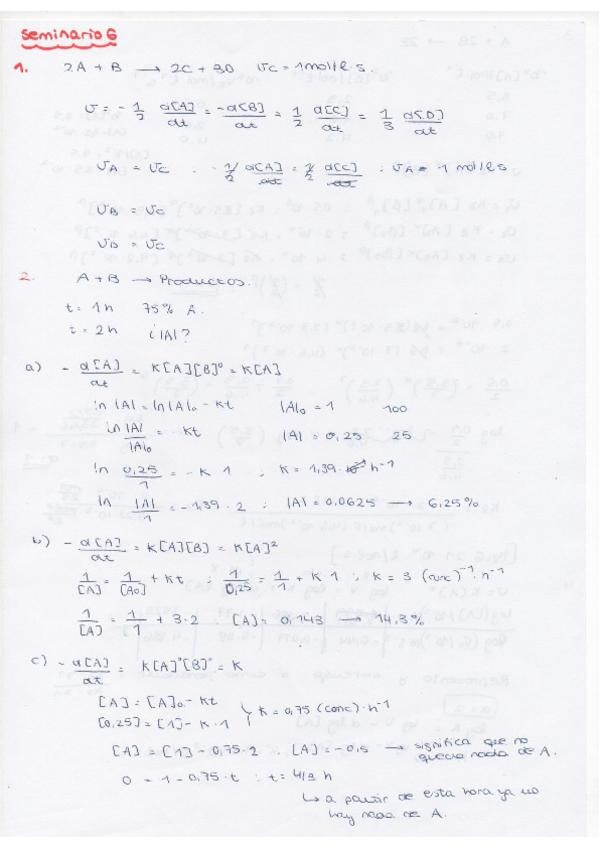 Seminario 6
1. 2A + B → 2C + 3D vc = 1 mol/l·s.
v = - 1/2 d[A]/dt = -d[B]/dt = 1/2 d[C]/dt = 1/3 d[D]/dt
vA = vC ∴ - 1/2 d[A]/dt = 1/2 d[C]/dt ∴ vA = 1 mol/l·s
vB = vC
vD = vC
2. A + B → Productos.
t = 1h 75% A.
t = 2h ¿|A|?
a) - d[A]/dt = K[A][B]⁰ = K[A]
ln |A| = ln |A|₀ - Kt |A|₀ = 1 100
ln |A|/|A|₀ = Kt |A| = 0,25 25
ln 0,25/1 = -K·1 ; K = 1,39 h⁻¹
ln |A|/1 = -1,39·2 ∴ |A| = 0,0625 → 6,25%
b) - d[A]/dt = K[A][B] = K[A]²
1/[A] = 1/[A₀] + Kt ∴ 1/0,25 = 1/1 + K·1 ∴ K = 3 (conc)⁻¹·h⁻¹
1/[A] = 1/1 + 3·2 ∴ [A] = 0,143 → 14,3%
c) - d[A]/dt = K[A]⁰[B]⁰ = K
[A] = [A]₀ - Kt
[0,25] = [1] - K·1 } K = 0,75 (conc)·h⁻¹
[A] = [1] - 0,75·2 ∴ [A] = -0,5 → significa que no
queda nada de A.
0 = 1 - 0,75·t ∴ t = 4/3 h
↳ a partir de esta hora ya no
hay nada de A.